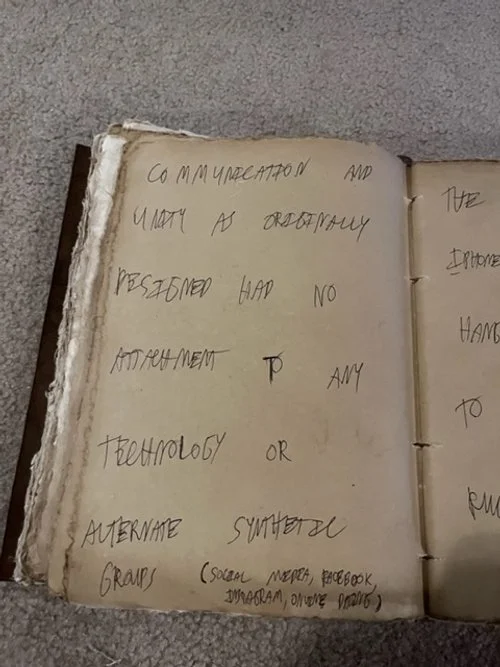 COMMUNICATION AND
UNITY AS ORIGINALLY
DESIGNED HAD NO
ATTACHMENT TO ANY
TECHNOLOGY OR
ALTERNATE SYNTHETIC
GROUPS (SOCIAL MEDIA, FACEBOOK,
INSTAGRAM, ONLINE DATING)
THE
IPHONE
HANG
TO